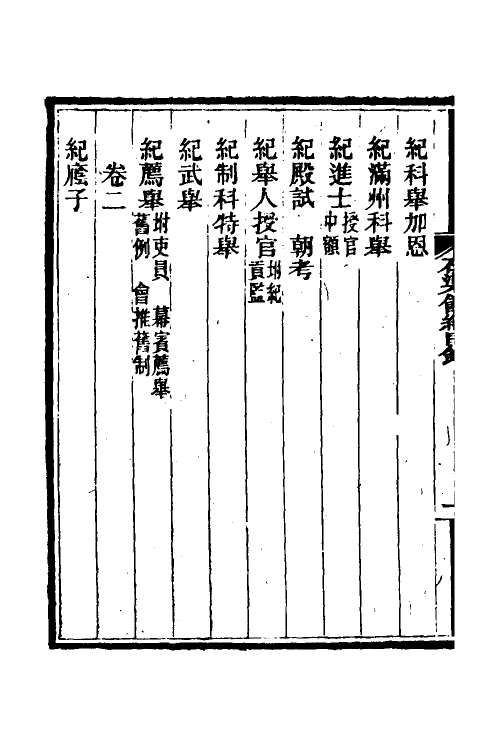 紀科舉加恩
紀滿州科舉
紀進士授官中額
紀殿試 朝考
紀舉人授官坿紀貢監
紀制科特舉
紀武舉
紀薦舉坿吏員 幕賓薦舉舊例 會推舊制
卷二
紀廕子
石渠餘紀目錄